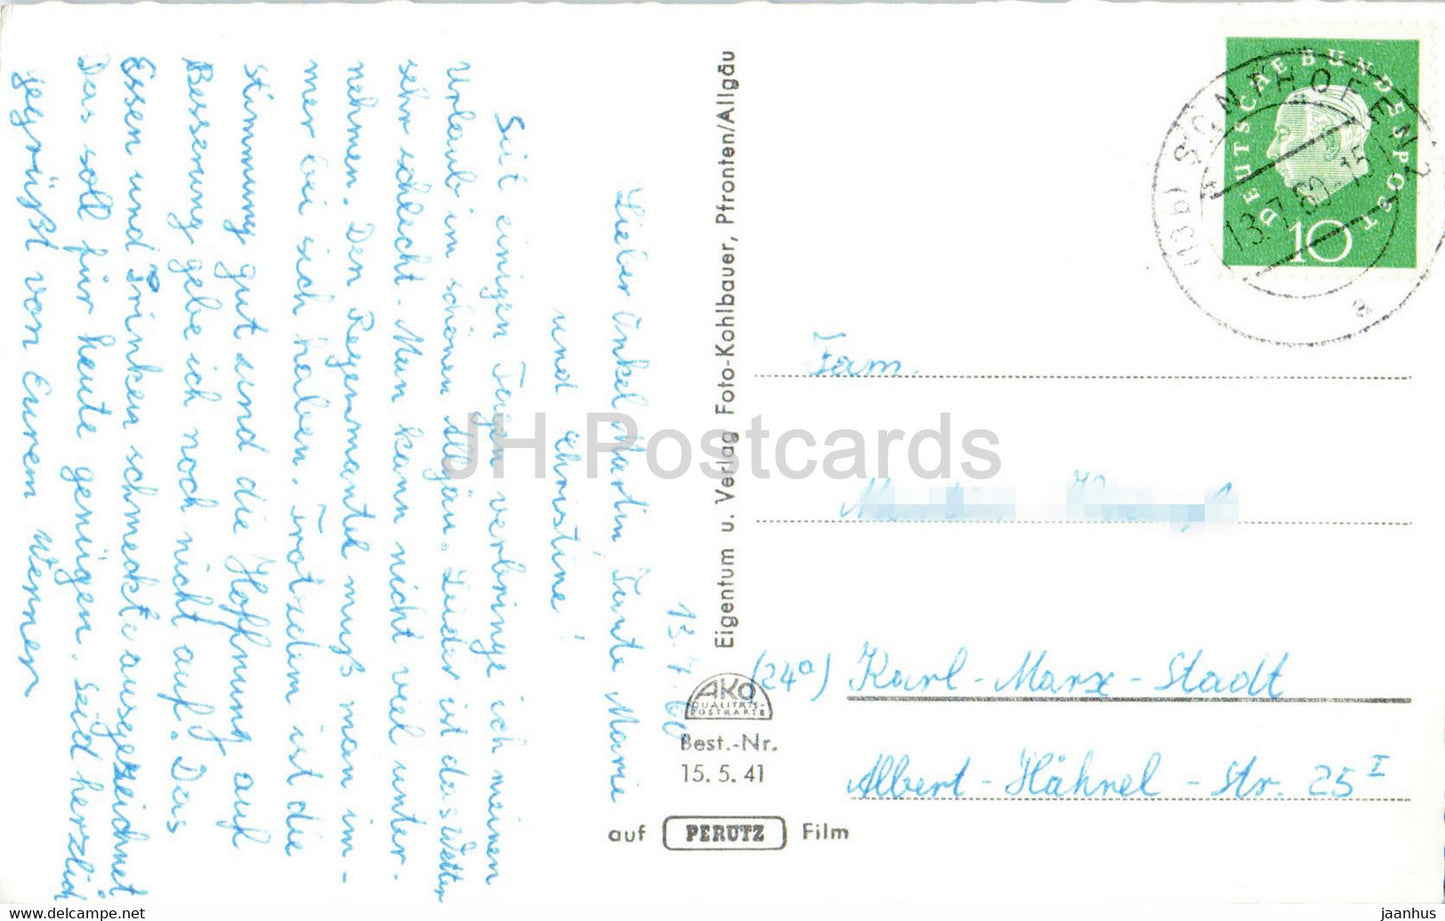 13.7.60
Lieber Onkel Martin, Tante Marie
und Christine!
Seit einigen Tagen verbringe ich meinen
Urlaub im schönen Allgäu. Leider ist das Wetter
sehr schlecht. Man kann nicht viel unter-
nehmen. Den Regenmantel muß man im-
mer bei sich haben. Trotzdem ist die
Stimmung gut und die Hoffnung auf
Besserung gebe ich noch nicht auf. Das
Essen und Trinken schmeckt ausgezeichnet
Das soll für heute genügen. Seid herzlich
gegrüßt von Eurem Werner
Eigentum u. Verlag Foto-Kohlbauer, Pfronten/Allgäu
AKO
QUALITÄTS-
POSTKARTE
Best.-Nr.
15.5.41
auf PERUTZ Film
DEUTSCHE BUNDESPOST
10
(13b) SONTHOFEN 2
13.7.60 15
a
Fam.
(24a) Karl-Marx-Stadt
Albert-Hähnel-Str. 25 I
JH Postcards
www.delcampe.net
jaanhus